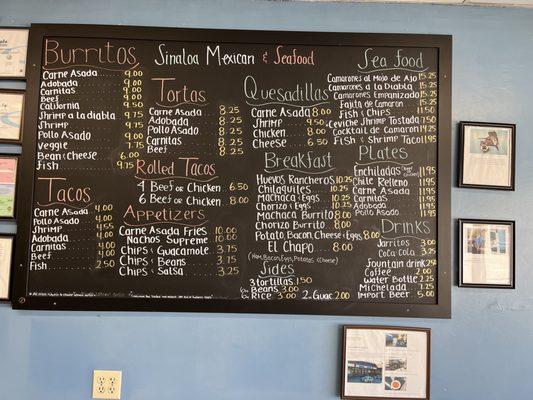 Sinaloa Mexican & Seafood
Burritos
Carne Asada 9.00
Adobada 9.00
Carnitas 9.00
Beef 9.00
California 9.50
Shrimp a la diabla 9.75
Shrimp 9.75
Pollo Asado 9.00
Veggie 7.75
Bean & Cheese 6.00
Fish 9.75
Tacos
Carne Asada 4.00
Pollo Asado 4.00
Shrimp 4.55
Adobada 4.00
Carnitas 4.00
Beef 4.00
Fish 2.50
Tortas
Carne Asada 8.25
Adobada 8.25
Pollo Asado 8.25
Carnitas 8.25
Beef 8.25
Rolled Tacos
4 Beef or Chicken 6.50
6 Beef or Chicken 8.00
Appetizers
Carne Asada Fries 10.00
Nachos Supreme 10.00
Chips & Guacamole 3.75
Chips & Beans 3.75
Chips & Salsa 3.25
Quesadillas
Carne Asada 8.00
Shrimp 9.50
Chicken 8.00
Cheese 6.50
Breakfast
Huevos Rancheros 10.25
Chilaquiles 10.25
Machaca & Eggs 10.25
Chorizo & Eggs 10.25
Machaca Burrito 8.00
Chorizo Burrito 8.00
Potato Bacon Cheese & Eggs 8.00
El Chapo 8.00
(Ham, Eggs, Potatoes, Cheese)
Sides
3 Tortillas 1.50
Beans 3.00
Rice 3.00 2oz Guac 2.00
Sea food
Camarones al Mojo de Ajo 15.25
Camarones a la Diabla 15.25
Camarones Empanizado 15.25
Fajita de Camaron 15.25
Fish & Chips 11.50
Ceviche Shrimp Tostada 7.50
Cocktail de Camaron 14.25
Fish & Shrimp Taco 11.95
Plates
Enchiladas 11.95
Chile Relleno 11.95
Carne Asada 11.95
Carnitas 11.95
Adobada 11.95
Pollo Asado 11.95
Drinks
Jarritos 3.00
Coca Cola 3.25
Fountain drink 2.50
Coffee 2.00
Water Bottle 2.25
Michelada 7.25
Import Beer 5.00